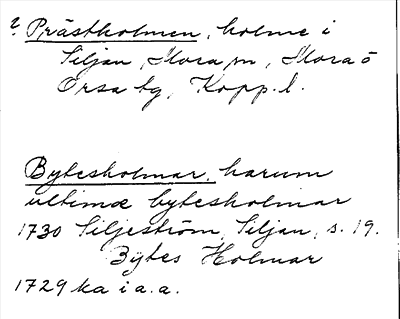 ? Prästholmen, holme i
Siljan, Mora sn, Mora o
Orsa tg, Kopp. l.
Bytesholmar, harum
ultimæ bytesholmar
1730 Siljeström, Siljan, s. 19.
Bÿtes Holmar
1729 ka i a.a.